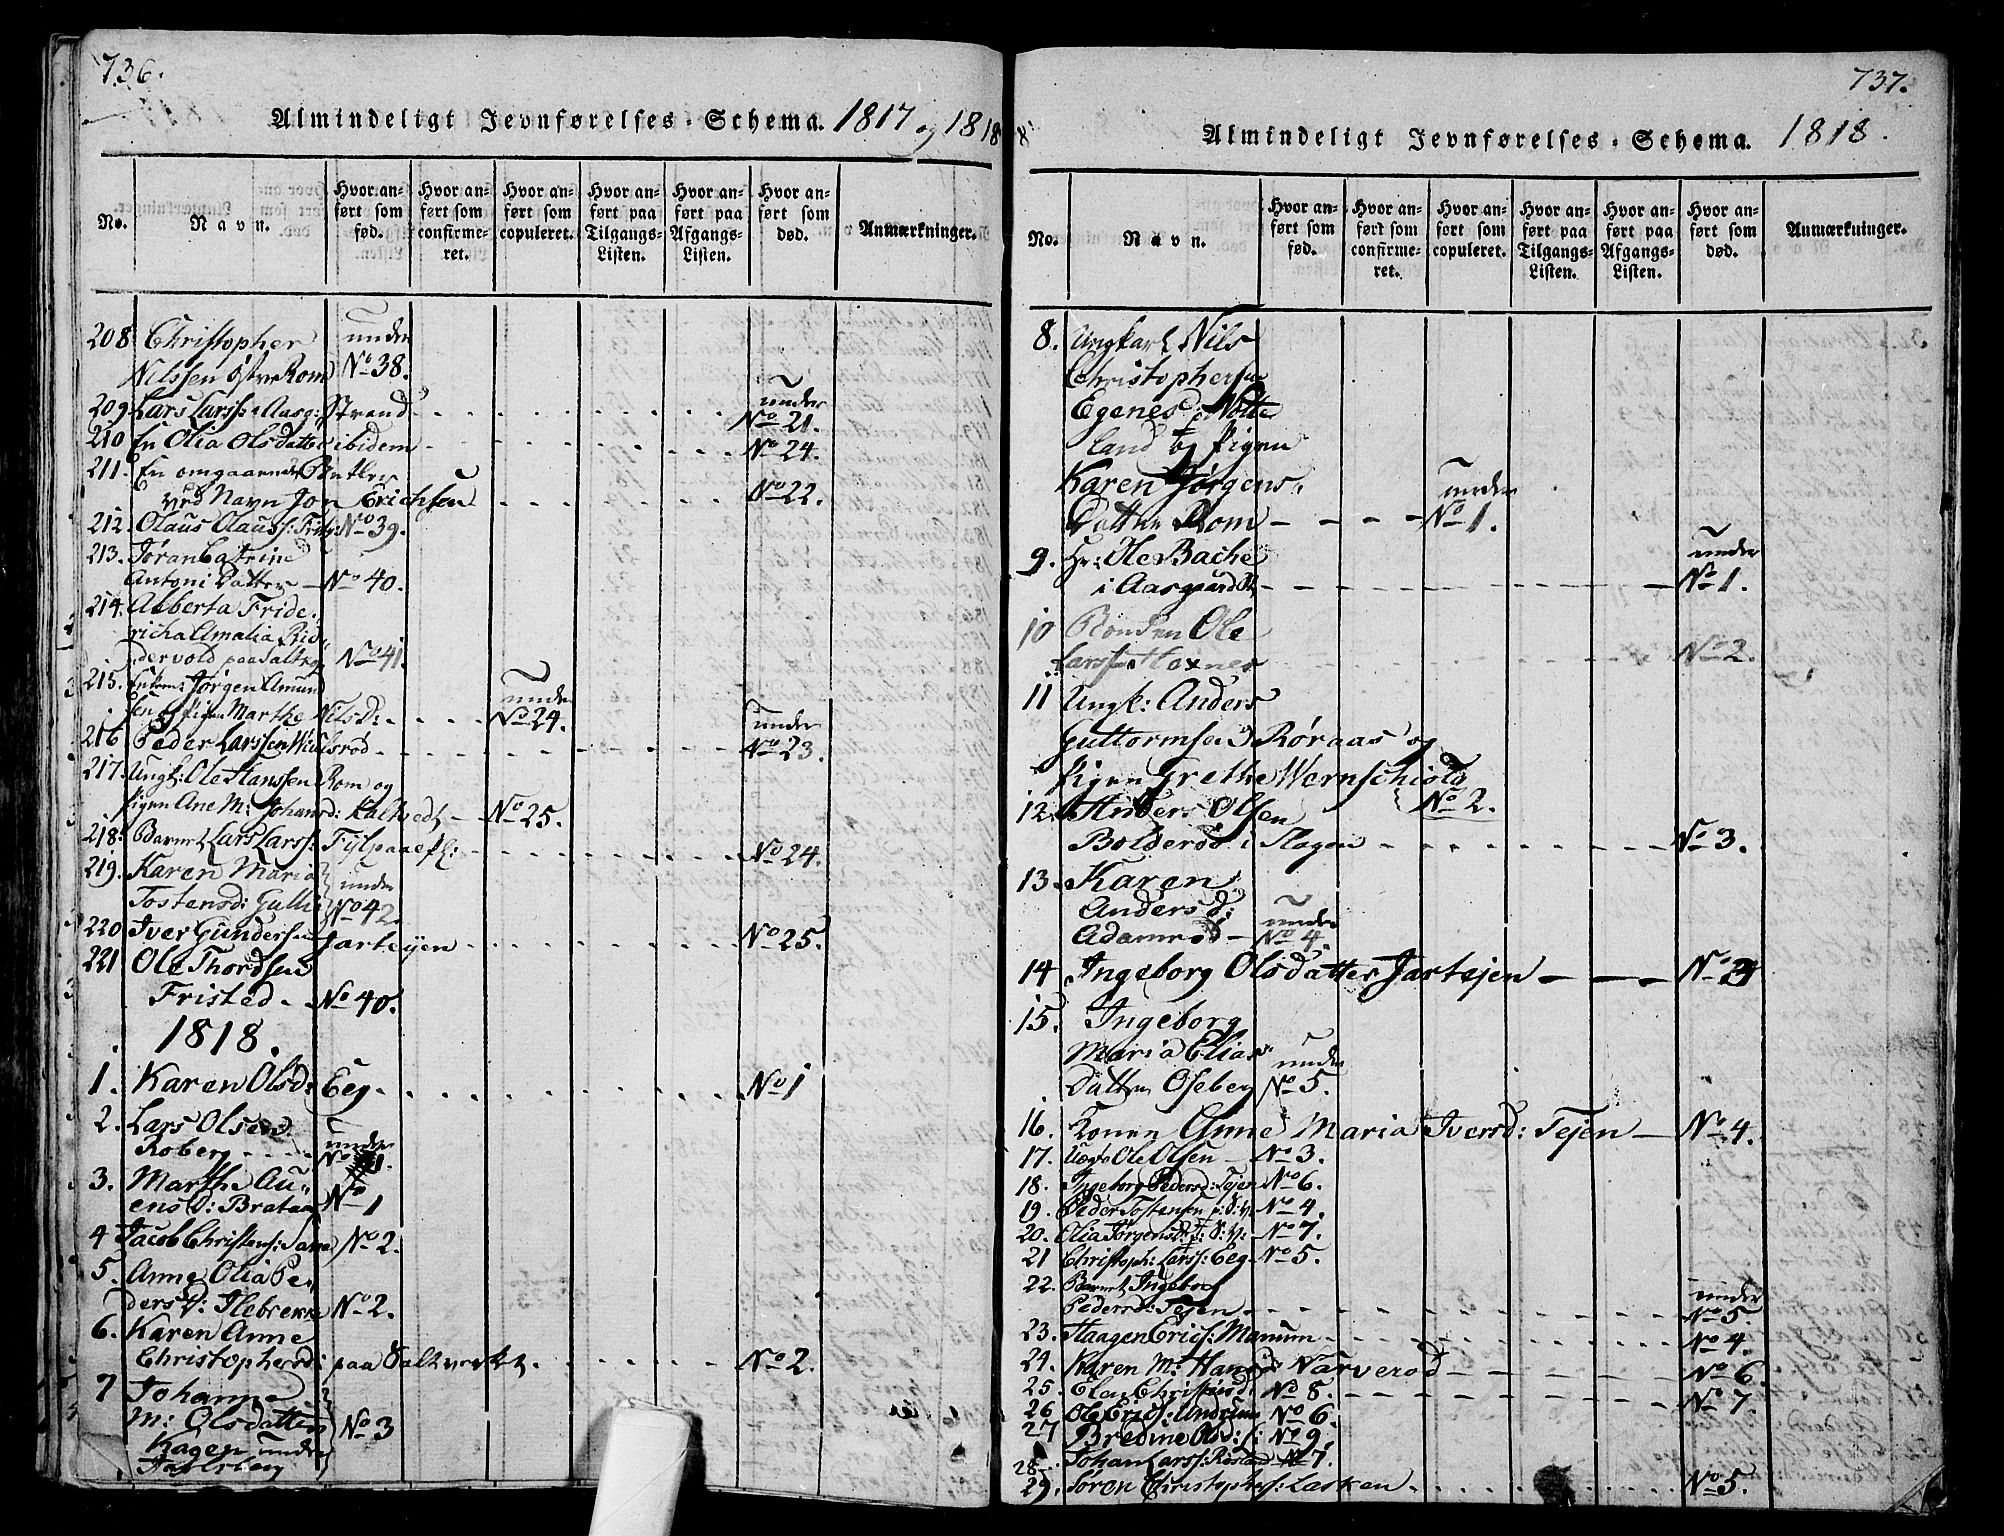 736.
Almindeligt Jevnførelses-Schema. 1817 og 1818
No.
Navn.
Hvor anført som fød.
Hvor anført som confirmeret.
Hvor anført som copuleret.
Hvor anført paa Tilgangs-Listen.
Hvor anført paa Afgangs-Listen.
Hvor anført som død.
Anmærkninger.
208 Christopher under
Nilssen østre Rom No 38.
209. Lars Larss: Aasg: Strand under No 21.
210 En Olia Olsdatter ibidem No 24.
211. En omgaaende Betler
ved Navn Jon Erichsen No 22.
212. Olaus Olauss: No 39.
213. Jøran Catrine
Antoni Datter No 40.
214. Alberta Fride-
richa Amalia Rid-
dervold paa Saltv No 41.
215. Enkem: Jørgen Amund
sen og pigen Marthe Nilsd: under No 24.
216 Peder Larssen Wiulsrød under No 23.
217. Ungk: Ole Hanssen Rom og
pigen Ane M: Johansd: Kaltvedt No 25.
218. Barnet Lars Larss: Fylpaaep: No 24.
219. Karen Maria under
Tostensd: Gulli No 42.
220 Iver Gundersen Jarteyen No 25.
221 Ole Thordsen
Fristed No 40.
1818.
1. Karen Olsd: Eeg No 1
2. Lars Olsen under
Roberg No 1.
3. Marthe Au-
ensd: Brataas No 1
4 Jacob Christens: No 2.
5. Anne Olia Pe-
dersd: Ilebrekke No 2.
6. Karen Anne
Christophersd: paa Saltverket No 2.
7 Johanne
M: Olsdatter No 3
Hagen under
Jarlsberg
737.
Almindeligt Jevnførelses-Schema. 1818.
No.
Navn.
Hvor anført som fød.
Hvor anført som confirmeret.
Hvor anført som copuleret.
Hvor anført paa Tilgangs-Listen.
Hvor anført paa Afgangs-Listen.
Hvor anført som død.
Anmærkninger.
8. Ungkarl Nils
Christophersen
Egenes
land og pigen
Karen Jørgens under
Datter Rom No 1.
9. Hr: Ole Bache under
i Aasgaard No 1.
10 Bonden Ole
Larssen Hoxnes No 2.
11 Ungk: Anders
Guttormsen Røraas og
pigen Grethe Wernschiold
No 2.
12. Anders Olsen
Bolderød i Slagen No 3.
13. Karen
Andersd: under
Adamrød No 4.
14 Ingeborg Olsdatter Jartejen No 3
15. Ingeborg
Maria Elias under
Datter Oseberg No 5.
16. Konen Anne Maria Iversd: Tejen No 4.
17. Uægte Ole Olsen No 3.
18. Ingeborg Pedersd: Tejen No 6.
19. Peder Tostensen p: S: v: No 4.
20. Olia Jørgensd: p: S: v: No 7.
21 Christoph: Larss: Eeg No 5.
22. Barnet Ingeborg under
Pedersd: Tejen No 5.
23. Haagen Erics: Manum No 4.
24. Karen M: Hansd Narverød No 6.
25. Elen Christensd: No 8. No 7.
26 Ole Erics: Undrum No 6.
27 Bredine Olsd: No 9.
28. Johan Larss: Røstad No 7.
29. Søren Christophs: Lasken No 5.